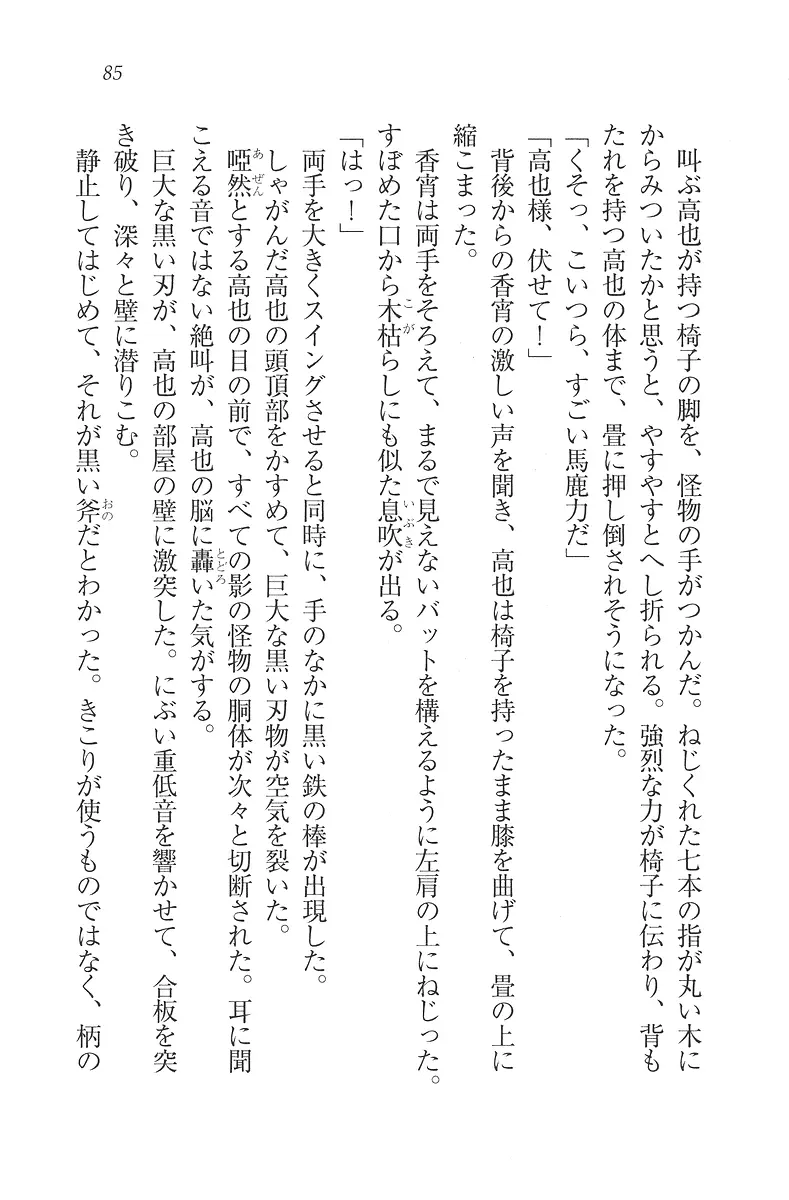 85
叫ぶ高也が持つ椅子の脚を、怪物の手がつかんだ。ねじくれた七本の指が丸い木に
からみついたかと思うと、やすやすとへし折られる。強烈な力が椅子に伝わり、背も
たれを持つ高也の体まで、畳に押し倒されそうになった。
「くそっ、こいつら、すごい馬鹿力だ」
「高也様、伏せて！」
背後からの香宵の激しい声を聞き、高也は椅子を持ったまま膝を曲げて、畳の上に
縮こまった。
香宵は両手をそろえて、まるで見えないバットを構えるように左肩の上にねじった。
すぼめた口から木枯こがらしにも似た息吹いぶきが出る。
「はっ！」
両手を大きくスイングさせると同時に、手のなかに黒い鉄の棒が出現した。
しゃがんだ高也の頭頂部をかすめて、巨大な黒い刃物が空気を裂いた。
啞然あぜんとする高也の目の前で、すべての影の怪物の胴体が次々と切断された。耳に聞
こえる音ではない絶叫が、高也の脳に轟とどろいた気がする。
巨大な黒い刃が、高也の部屋の壁に激突した。にぶい重低音を響かせて、合板を突
き破り、深々と壁に潜りこむ。
静止してはじめて、それが黒い斧おのだとわかった。きこりが使うものではなく、柄の